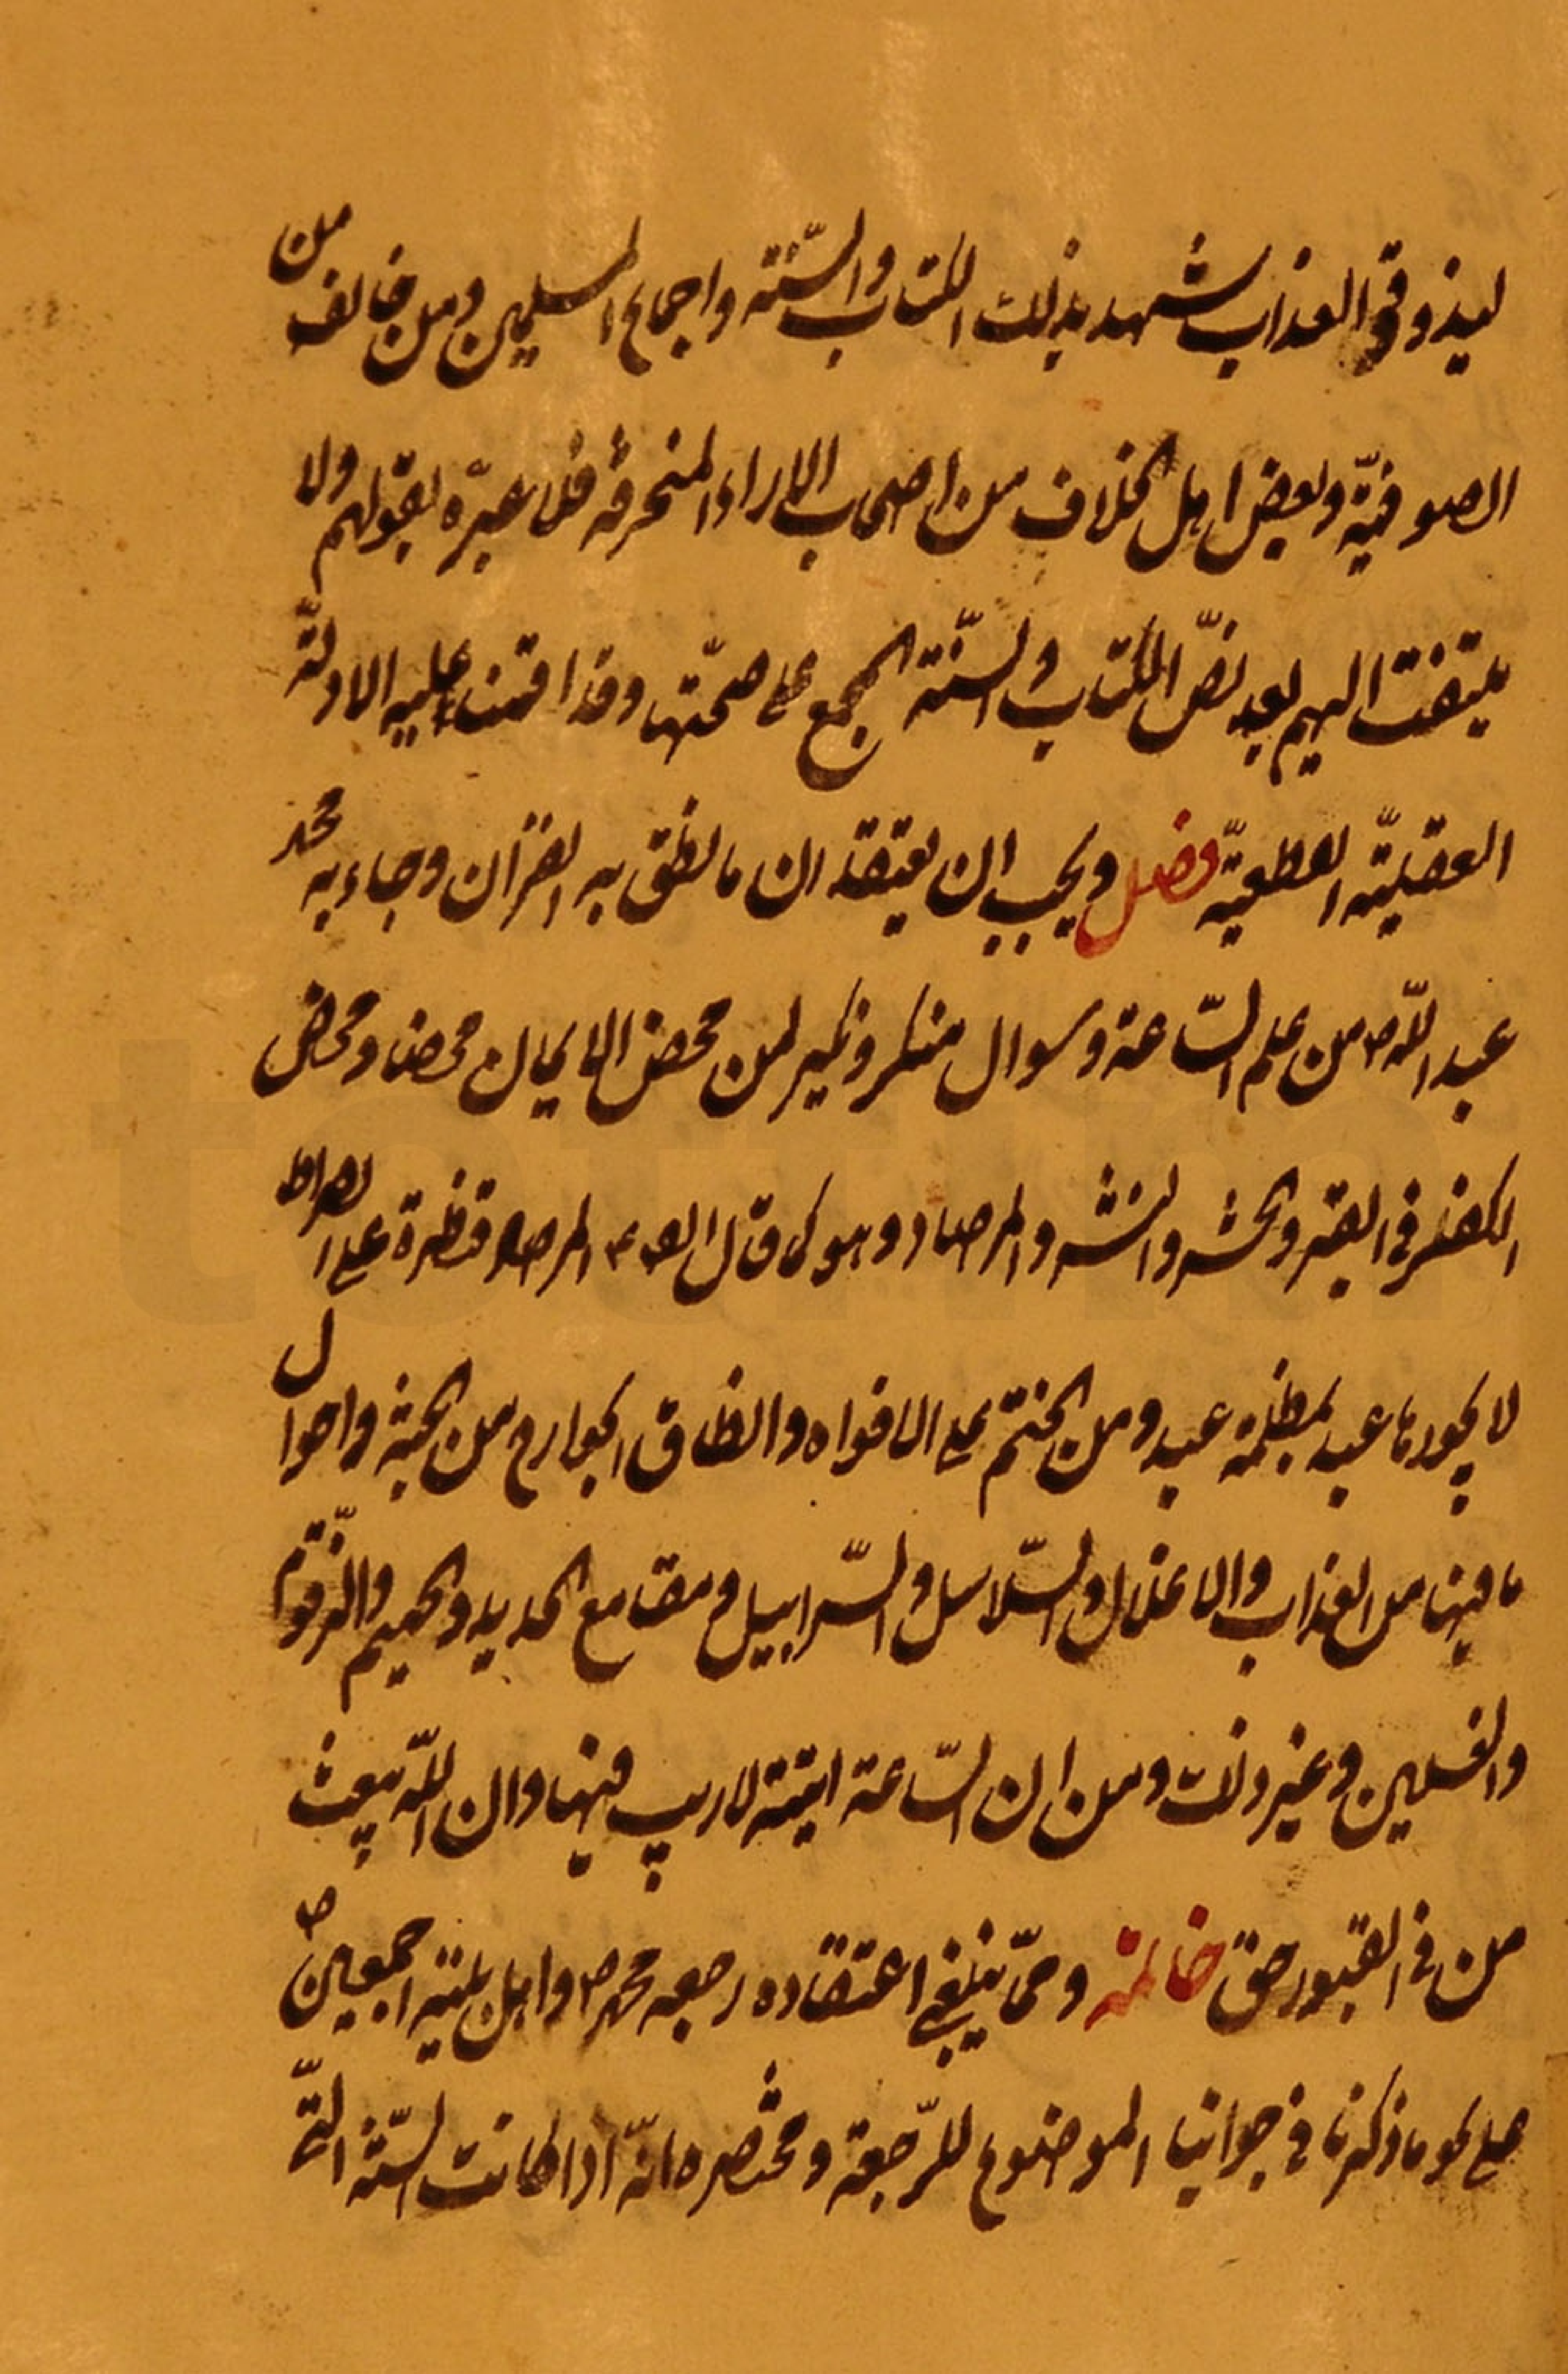 ليذوقوا العذاب شهد بذلك الكتاب والسنّة واجماع المسلمين ومن خالف من
الصوفيّة وبعض اهل الخلاف من اصحاب الاراء المنحرفة فلا عبرة بقولهم ولا
يلتفت اليهم بعد نصّ الكتاب والسنّة المجمع على صحّتها وقد اقتت عليه الادلّة
العقليّة القطعيّة فصل ويجب ان يعتقد ان ما نطق به القرآن وجاء به محمد
عبد اللّه ص من علم السّاعة وسوال منكر ونكير لمن محض الايمان محضا ومحض
الكفر فى القبر والحشر والنشر والمرصاد وهو كما قال الص ع المرصاد قنطرة على الصراط
لا يجوزها عبد بمظلمة عبد ومن الختم على الافواه وانطاق الجوارح من الجنة واحوال
ما فيها من العذاب والاغلال والسّلاسل والسّرابيل ومقامع الحديد والحميم والزقّوم
والغسلين وغير ذلك ومن ان السّاعة اتية لا ريب فيها وان اللّه يبعث
من فى القبور حق خاتمة وممّا ينبغى اعتقاده رجعه محمد ص واهل بيته اجمعين ص
على نحو ما ذكرنا فى جوابنا الموضوع للرّجعة ومختصره انّه اذا كانت السّنة الّتى